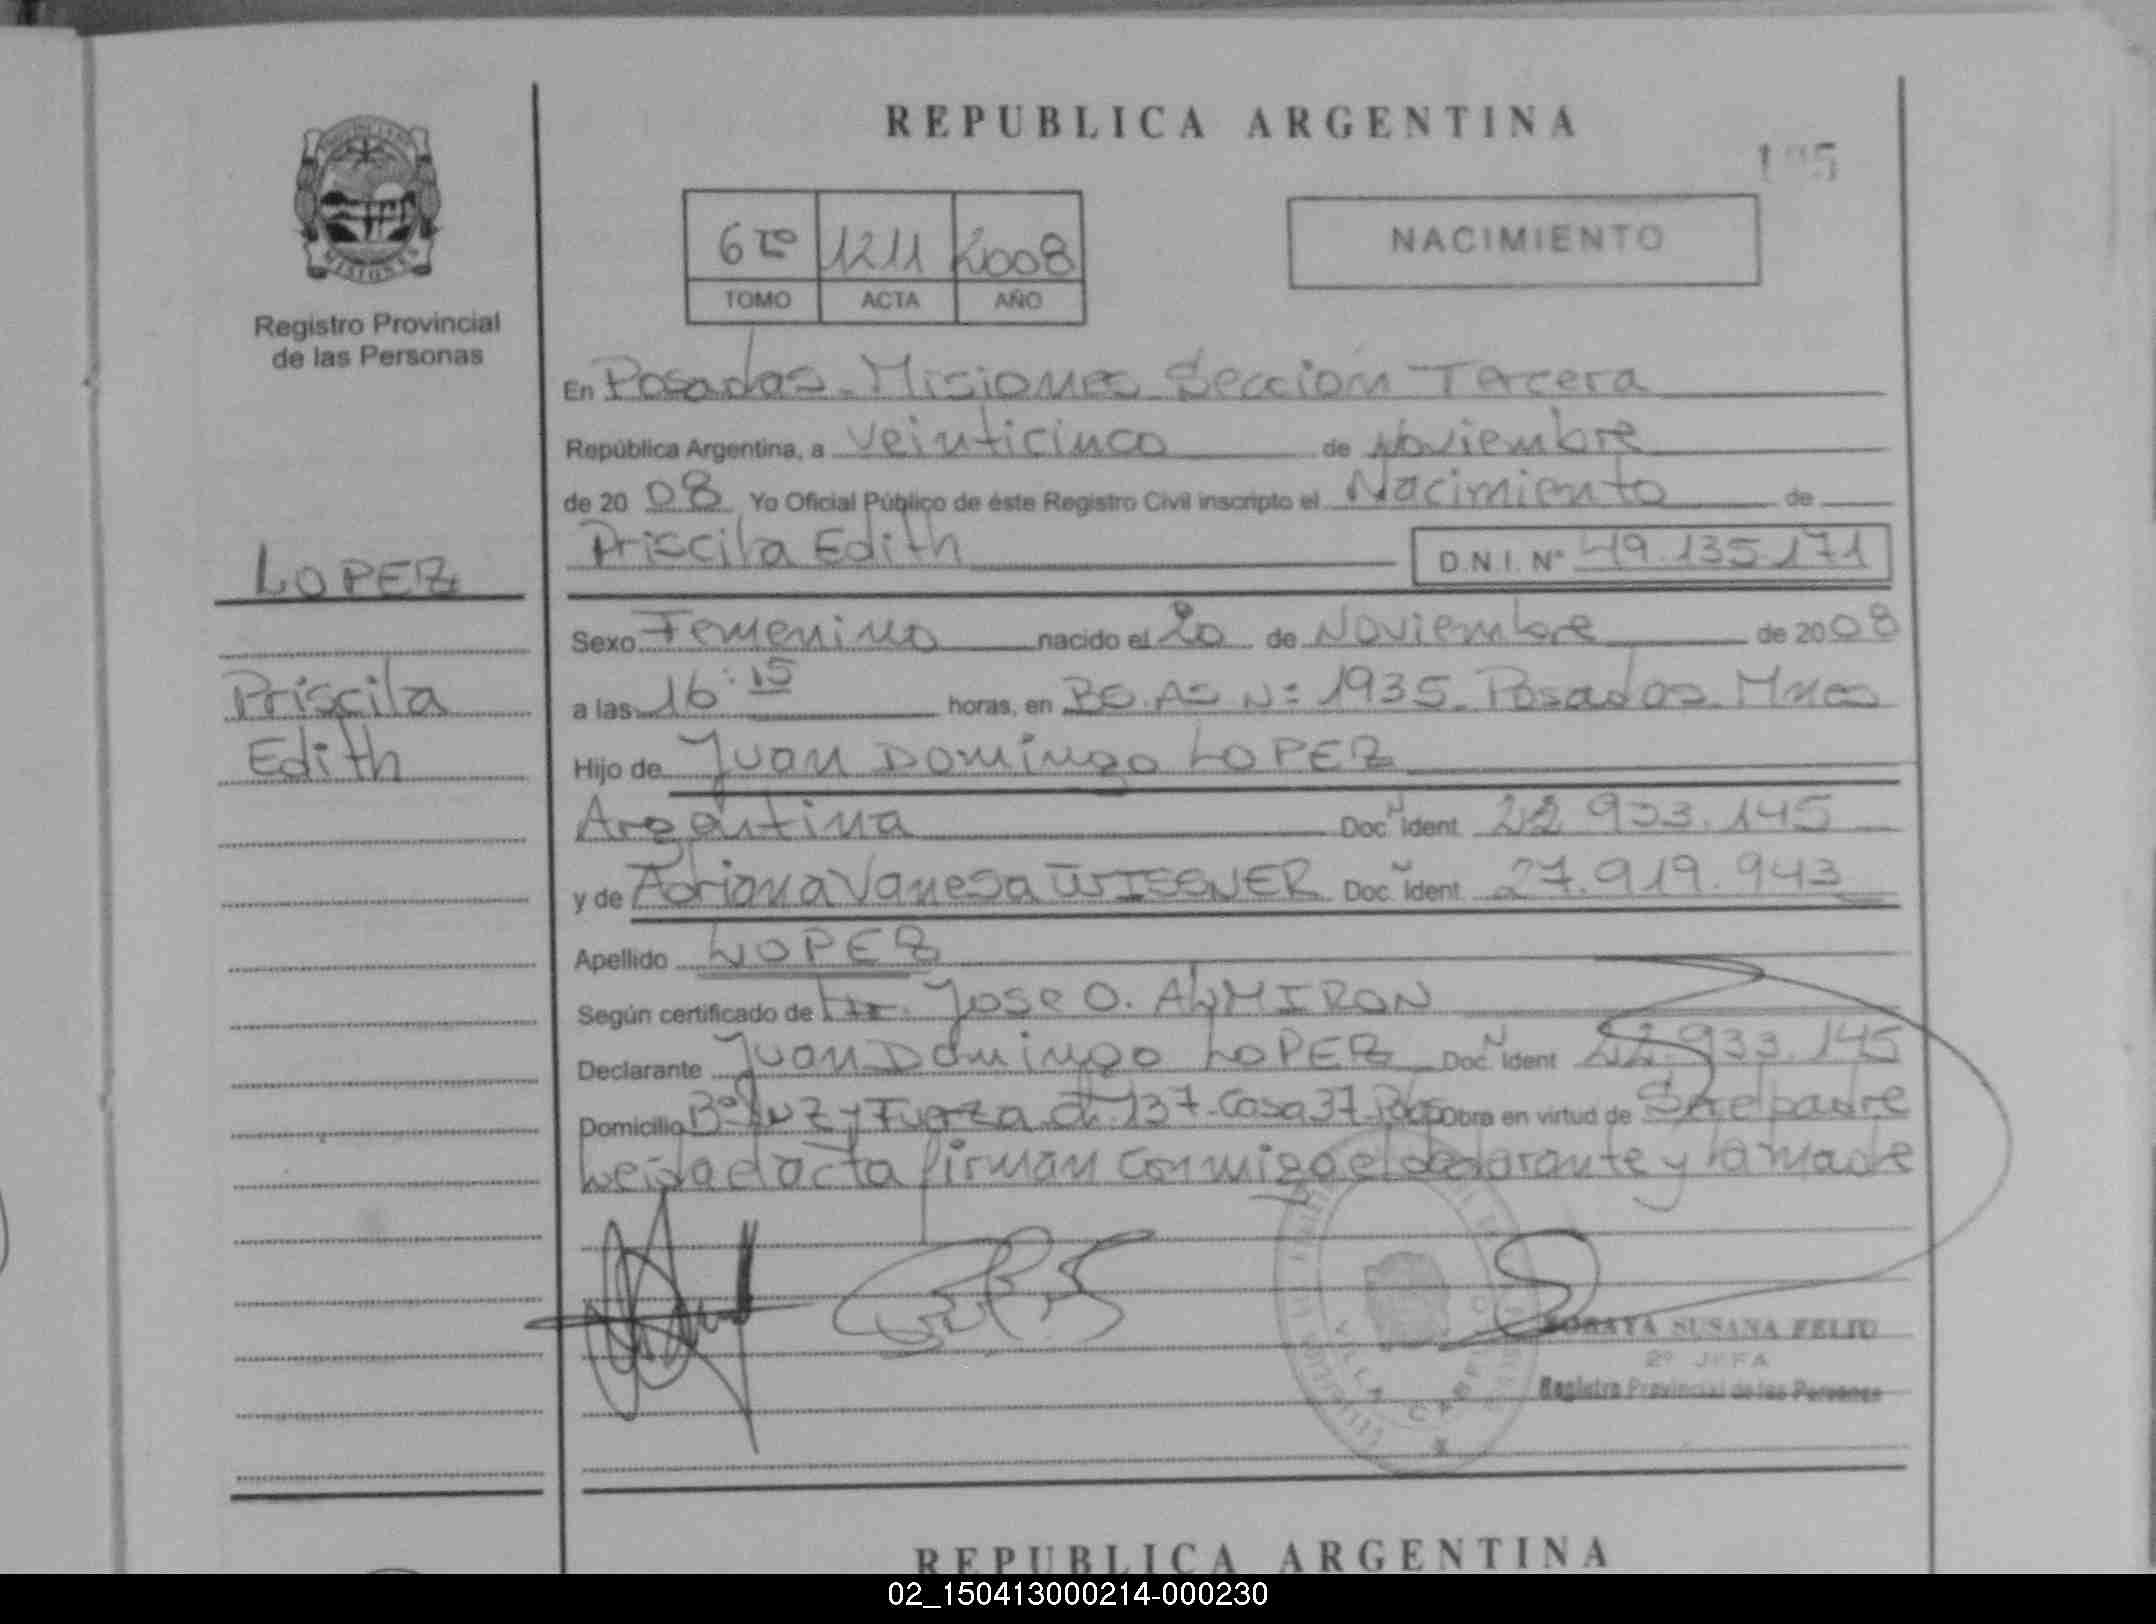 REPUBLICA ARGENTINA
MISIONES
Registro Provincial
de las Personas
6to 1211 2008
TOMO ACTA AÑO
NACIMIENTO
En Posadas - Misiones Seccion Tercera
República Argentina, a veinticinco de Noviembre
de 20 08 Yo Oficial Público de éste Registro Civil inscripto el Nacimiento de
Priscila Edith D.N.I. N° 49.135.171
LOPEZ
Priscila
Edith
Sexo Femenino nacido el 20 de Noviembre de 2008
a las 16:15 horas, en BS.AS N: 1935 - Posadas Mnes
Hijo de Juan Domingo LOPEZ
Argentina Doc. Ident 22.933.145
y de Adriana Vanesa WISSNER Doc. Ident 27.919.943
Apellido LOPEZ
Según certificado de Dr. Jose O. ALMIRON
Declarante Juan Domingo LOPEZ Doc. Ident 22.933.145
Domicilio B° Luz y Fuerza Ch 137 - Casa 37 Pdas Obra en virtud de Ser el padre
Leida el acta firman conmigo el declarante y la madre
SORAYA SUSANA FELIU
2° JEFA
Registro Provincial de las Personas
REPUBLICA ARGENTINA
02_150413000214-000230